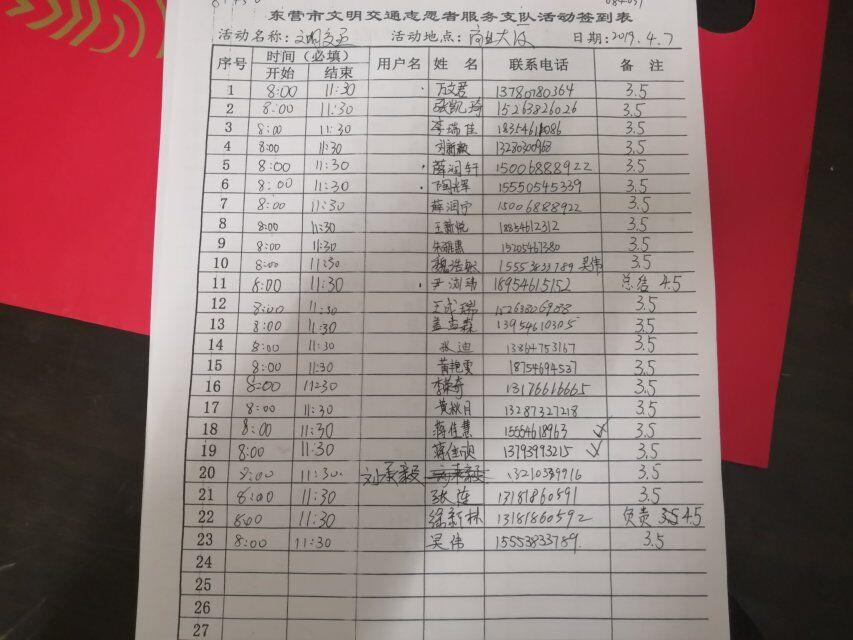 东营市文明交通志愿者服务支队活动签到表
活动名称: 文明交通 活动地点: 商业大厦 日期: 2019.4.7
序号 时间（必填） 用户名 姓 名 联系电话 备 注
开始 结束
1 8:00 11:30 万文君 13780780364 3.5
2 8:00 11:30 张凯琦 15263826026 3.5
3 8:00 11:30 李瑞佳 3.5
4 8:00 11:30 13280300968 3.5
5 8:00 11:30 薛润轩 15006888922 3.5
6 8:00 11:30 陶辉 15550545339 3.5
7 8:00 11:30 薛润宁 15006888922 3.5
8 8:00 11:30 王新悦 18854612312 3.5
9 8:00 11:30 朱雅惠 15205461380 3.5
10 8:00 11:30 魏浩 15553833789 吴伟 3.5
11 8:00 11:30 尹浏玮 18954615152 总售 4.5
12 8:00 11:30 王成瑞 15263806988 3.5
13 8:00 11:30 13954610305 3.5
14 8:00 11:30 张迪 13864753167 3.5
15 8:00 11:30 黄艳雯 18754694537 3.5
16 8:00 11:30 李荣奇 13176616665 3.5
17 8:00 11:30 黄秋月 13287327218 3.5
18 8:00 11:30 蒋佳慧 15554618963 √ 3.5
19 8:00 11:30 蒋佳 13793993215 √ 3.5
20 8:00 11:30 刘承毅 13210389916 3.5
21 8:00 11:30 张莲 13181860591 3.5
22 8:00 11:30 徐新林 13181860592 负责 3.5 4.5
23 8:00 11:30 吴伟 15553833789 3.5
24
25
26
27